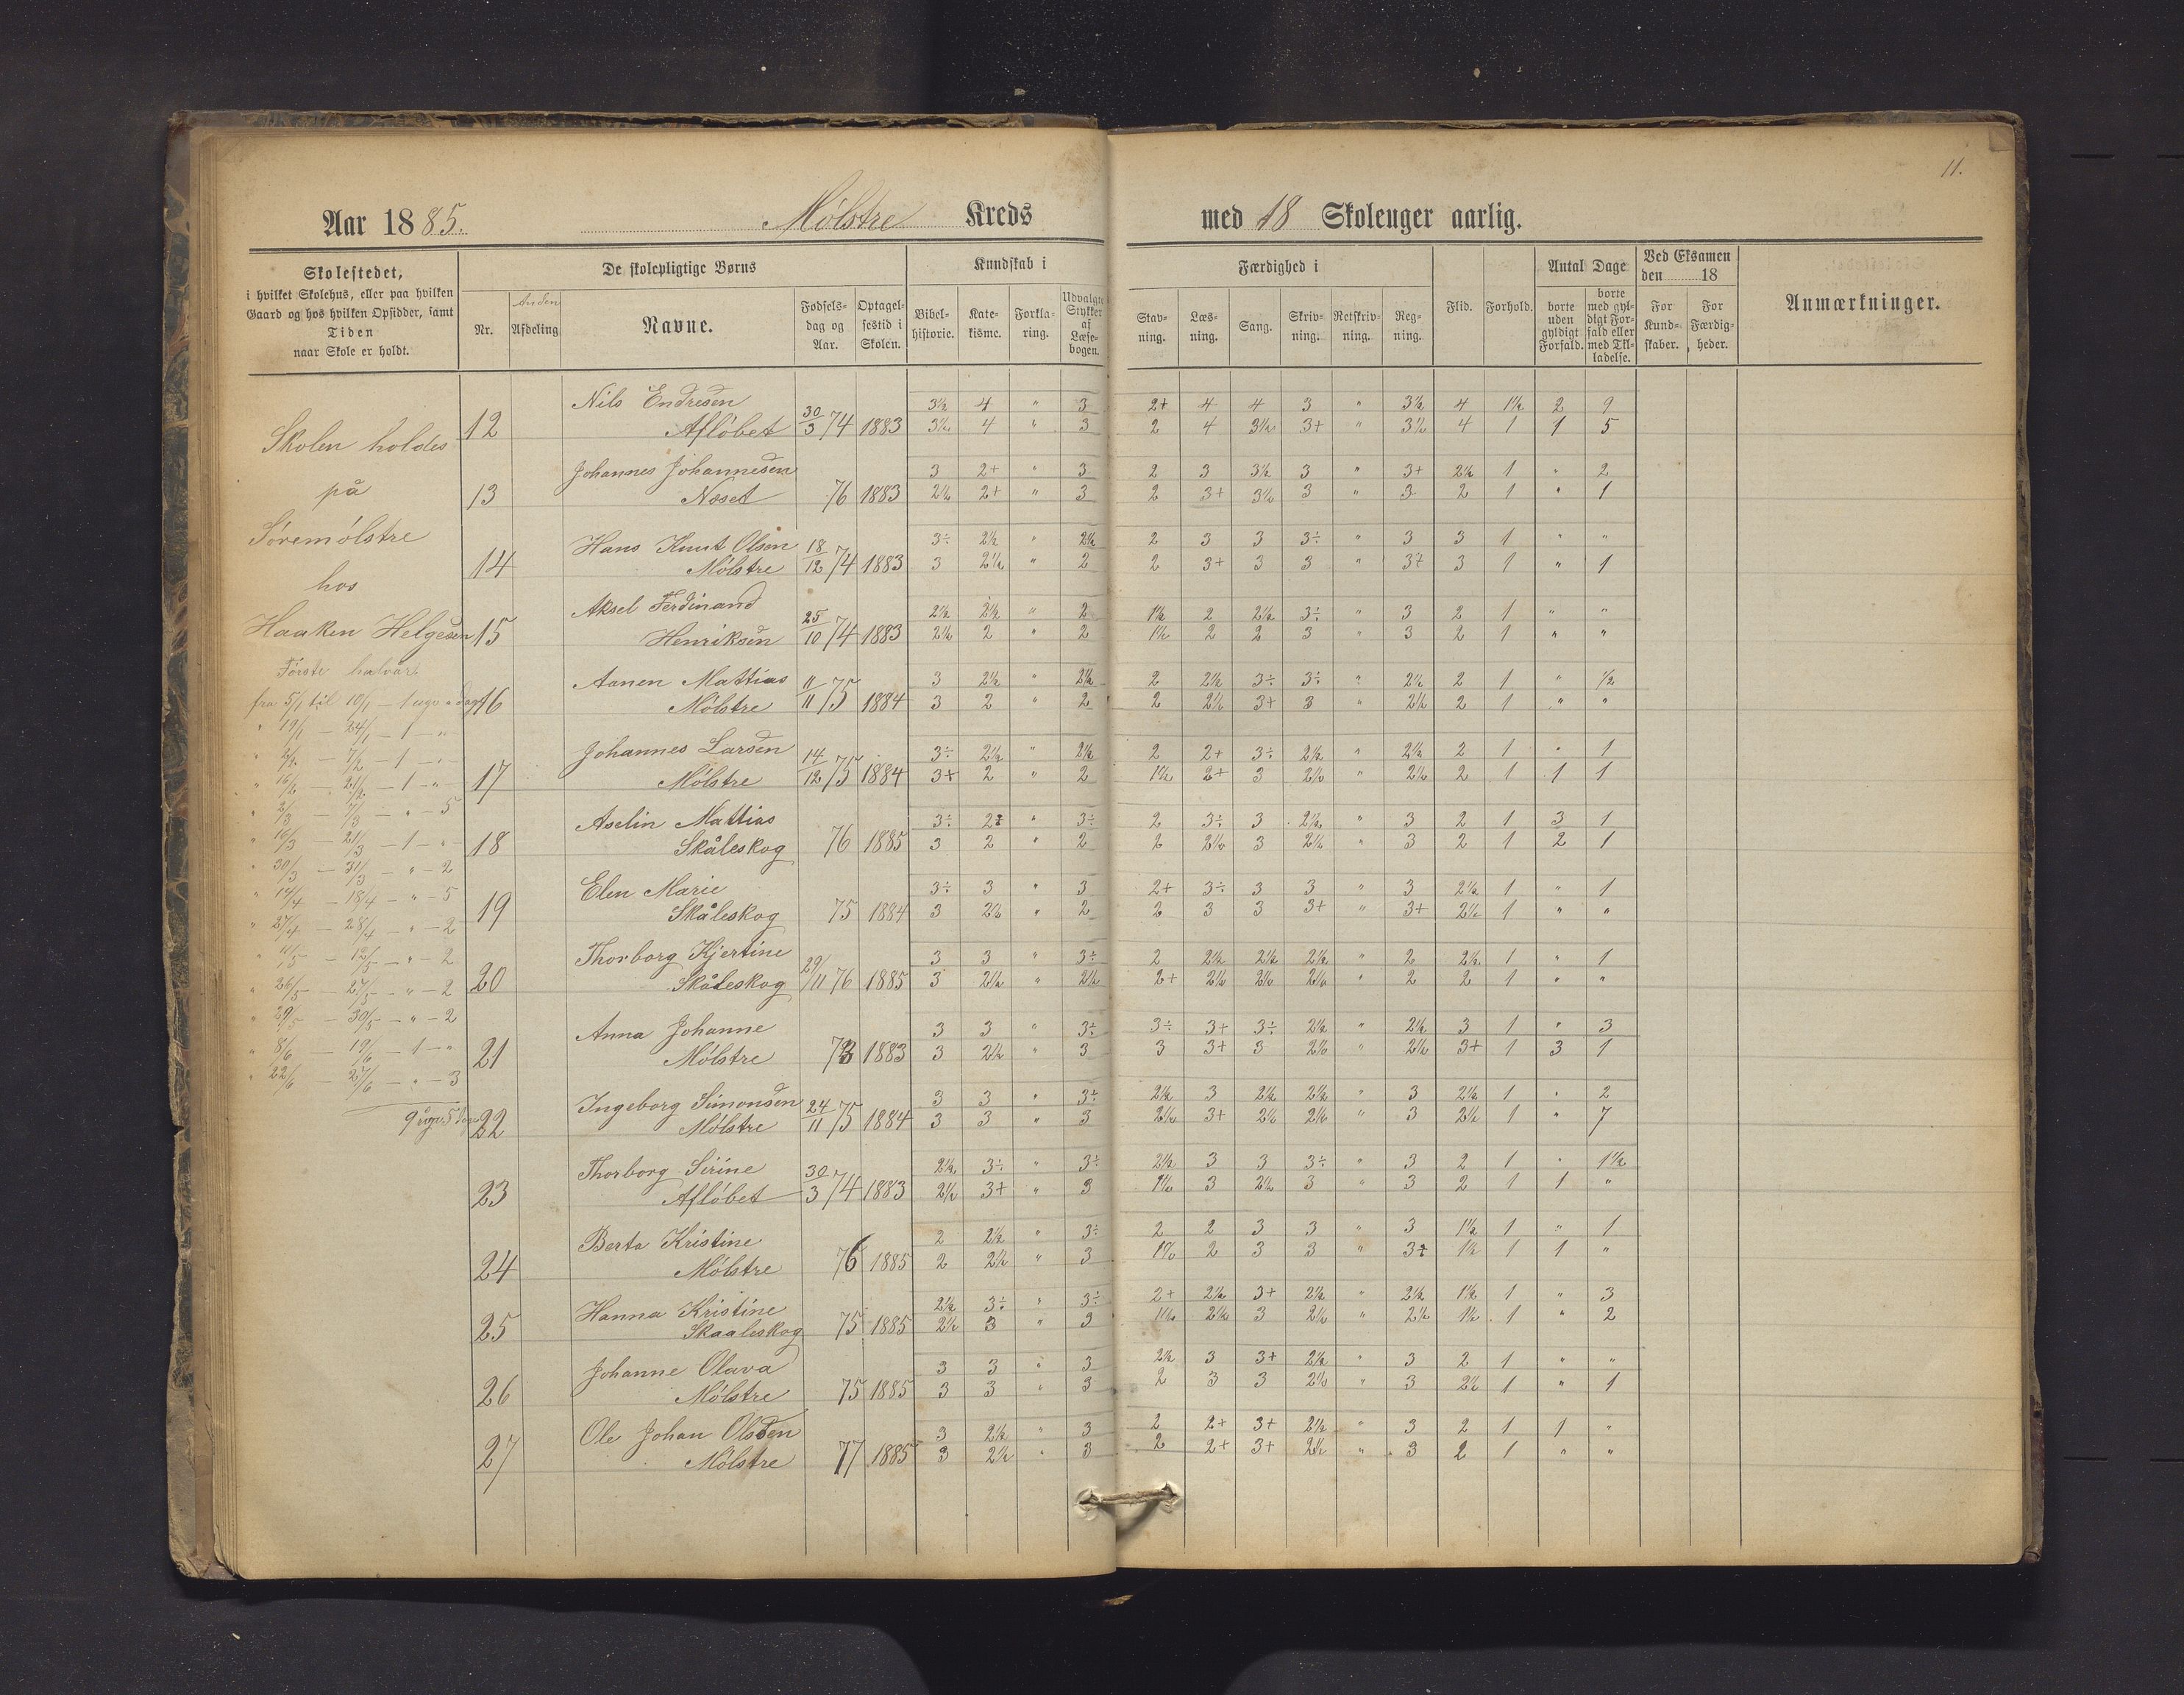 11.
Aar 1885. Mólstre Kreds med 18 Skoleuger aarlig.
Skolestedet,
i hvilket Skolehus, eller paa hvilken
Gaard og hos hvilken Opsidder, samt
Tiden
naar Skole er holdt.
De skolepligtige Børns
Nr.
Anden
Afdeling
Navne.
Fødsels-
dag og
Aar.
Optagel-
sestid i
Skolen.
Kundskab i
Bibel-
historie.
Kate-
kisme.
Forkla-
ring.
Udvalgte
Stykker
af
Læse-
bogen.
Færdighed i
Stav-
ning.
Læs-
ning.
Sang.
Skriv-
ning.
Retskriv-
ning.
Reg-
ning.
Flid.
Forhold.
Antal Dage
borte
uden
gyldigt
Forfald.
borte
med gyl-
digt For-
fald eller
med Til-
ladelse.
Ved Eksamen
den 18
For
Kund-
skaber.
For
Færdig-
heder.
Anmærkninger.
Skolen holdes
på
Sóremólstre
hos
Haaken Helgesen
Fórste halvår
fra 5/1 til 10/1 - 1 uge
" 19/1 - 24/1 - 1 - "
" 2/2 - 7/2 - 1 - "
" 2/3 - 7/3 - " - 5
" 16/3 - 21/3 - 1 - "
" 30/3 - 31/3 - " - 2
" 14/4 - 18/4 - " - 5
" 27/4 - 28/4 - " - 2
" 11/5 - 12/5 - " - 2
" 26/5 - 27/5 - " - 2
" 29/5 - 30/5 - " - 2
" 22/6 - 27/6 - " - 3
12 Nils Endresen 3½ 4 " 3 2+ 4 4 3 " 3½ 4 1½ 2 9
Aflóbet 30/3 74 1883 3½ 4 " 3 2 4 3½ 3+ " 3½ 4 1 1 5
13 Johannes Johannesen 3 2+ " 3 2 3 3½ 3 " 3+ 2½ 1 " 2
Noset 76 1883 2½ 2+ " 3 2 3+ 3½ 3 " 3 2 1 " 1
14 Hans Knut Olsen 18/12 74 3÷ 2½ " 2½ 2 3 3 3÷ " 3 3 1 " "
Mólstre 1883 3 2½ " 2 2 3+ 3 3 " 3+ 3 1 " 1
15 Aksel Ferdinand 2½ 2½ " 2 1½ 2 2½ 3÷ " 3 2 1 " "
Henriksen 25/10 74 1883 2½ 2 " 2 1½ 2 2 3 " 3 2 1 " "
16 Aanen Mattias 11/11 75 3 2½ " 2½ 2 2½ 3÷ 3÷ " 2½ 2 1 " ½
Mólstre 1884 3 2 " 2 2 2½ 3+ 3 " 2½ 2 1 " "
17 Johannes Larsen 3÷ 2½ " 2½ 2 2+ 3÷ 2½ " 2½ 2 1 " 1
Mólstre 14/12 75 1884 3+ 2 " 2 1½ 2+ 3 2½ " 2½ 2 1 1 1
18 Aselin Mattias 3÷ 2÷ " 3÷ 2 3÷ 3 2½ " 3 2 1 3 1
Skåleskog 76 1885 3 2 " 2 2 2½ 3 2½ " 3 2 1 2 1
19 Elen Marie 3÷ 3 " 3 2+ 3÷ 3 3 " 3 2½ 1 " 1
Skåleskog 75 1884 3 2½ " 2 2 3 3 3+ " 3+ 2½ 1 " "
20 Thorborg Kjertine 3 3 " 3÷ 2 2½ 2½ 2½ " 2 2½ 1 " 1
Skåleskog 29/11 76 1885 3 2½ " 2½ 2+ 2½ 2½ 2½ " 2 2 1 " "
21 Anna Johanne 3 3 " 3÷ 3÷ 3+ 3÷ 2½ " 2½ 3 1 " 3
Mólstre 73 1883 3 2½ " 3 3 3+ 3 2½ " 2½ 3+ 1 3 1
22 Ingeborg Simonsen 3 3 " 3÷ 2½ 3 2½ 2½ " 3 2½ 1 " 2
Mólstre 24/11 75 1884 3 3 " 3 2½ 3+ 2½ 2½ " 3 2½ 1 " 7
23 Thorborg Sirine 2½ 3÷ " 3÷ 2½ 3 3 3÷ " 3 2 1 " 1½
Aflóbet 30/3 74 1883 2½ 3+ " 3 1½ 3 2½ 3 " 3 2 1 1 "
24 Berta Kristine 2 2½ " 3÷ 2 2 3 3 " 3 1½ 1 " 1
Mólstre 76 1885 2 2½ " 3 1½ 2 3 3 " 3+ 1½ 1 1 "
25 Hanna Kristine 2½ 3÷ " 3÷ 2+ 2½ 3+ 2½ " 2½ 1½ 1 " 3
Skaaleskog 75 1885 2½ 3 " 3 1½ 2½ 3 2½ " 2½ 1½ 1 " 2
26 Johanne Olava 3 3 " 3 2½ 3 3+ 2½ " 3 2 1 " "
Mólstre 75 1885 3 3 " 3 2 3 3 2½ " 3 2½ 1 " 1
27 Ole Johan Olsen 3 2½ " 3 2 2+ 3+ 2½ " 3 2 1 1 "
Mólstre 77 1885 3 2½ " 3 2 2+ 3+ 2½ " 3 2 1 " "